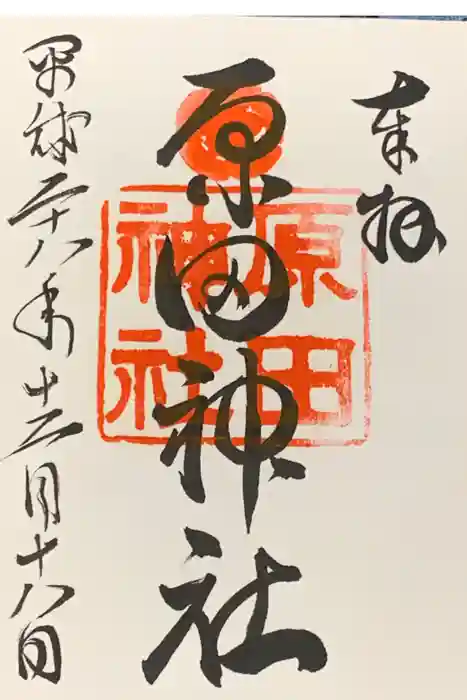 奉拝
原田神社
原田
神社
平成二十八年十二月十八日